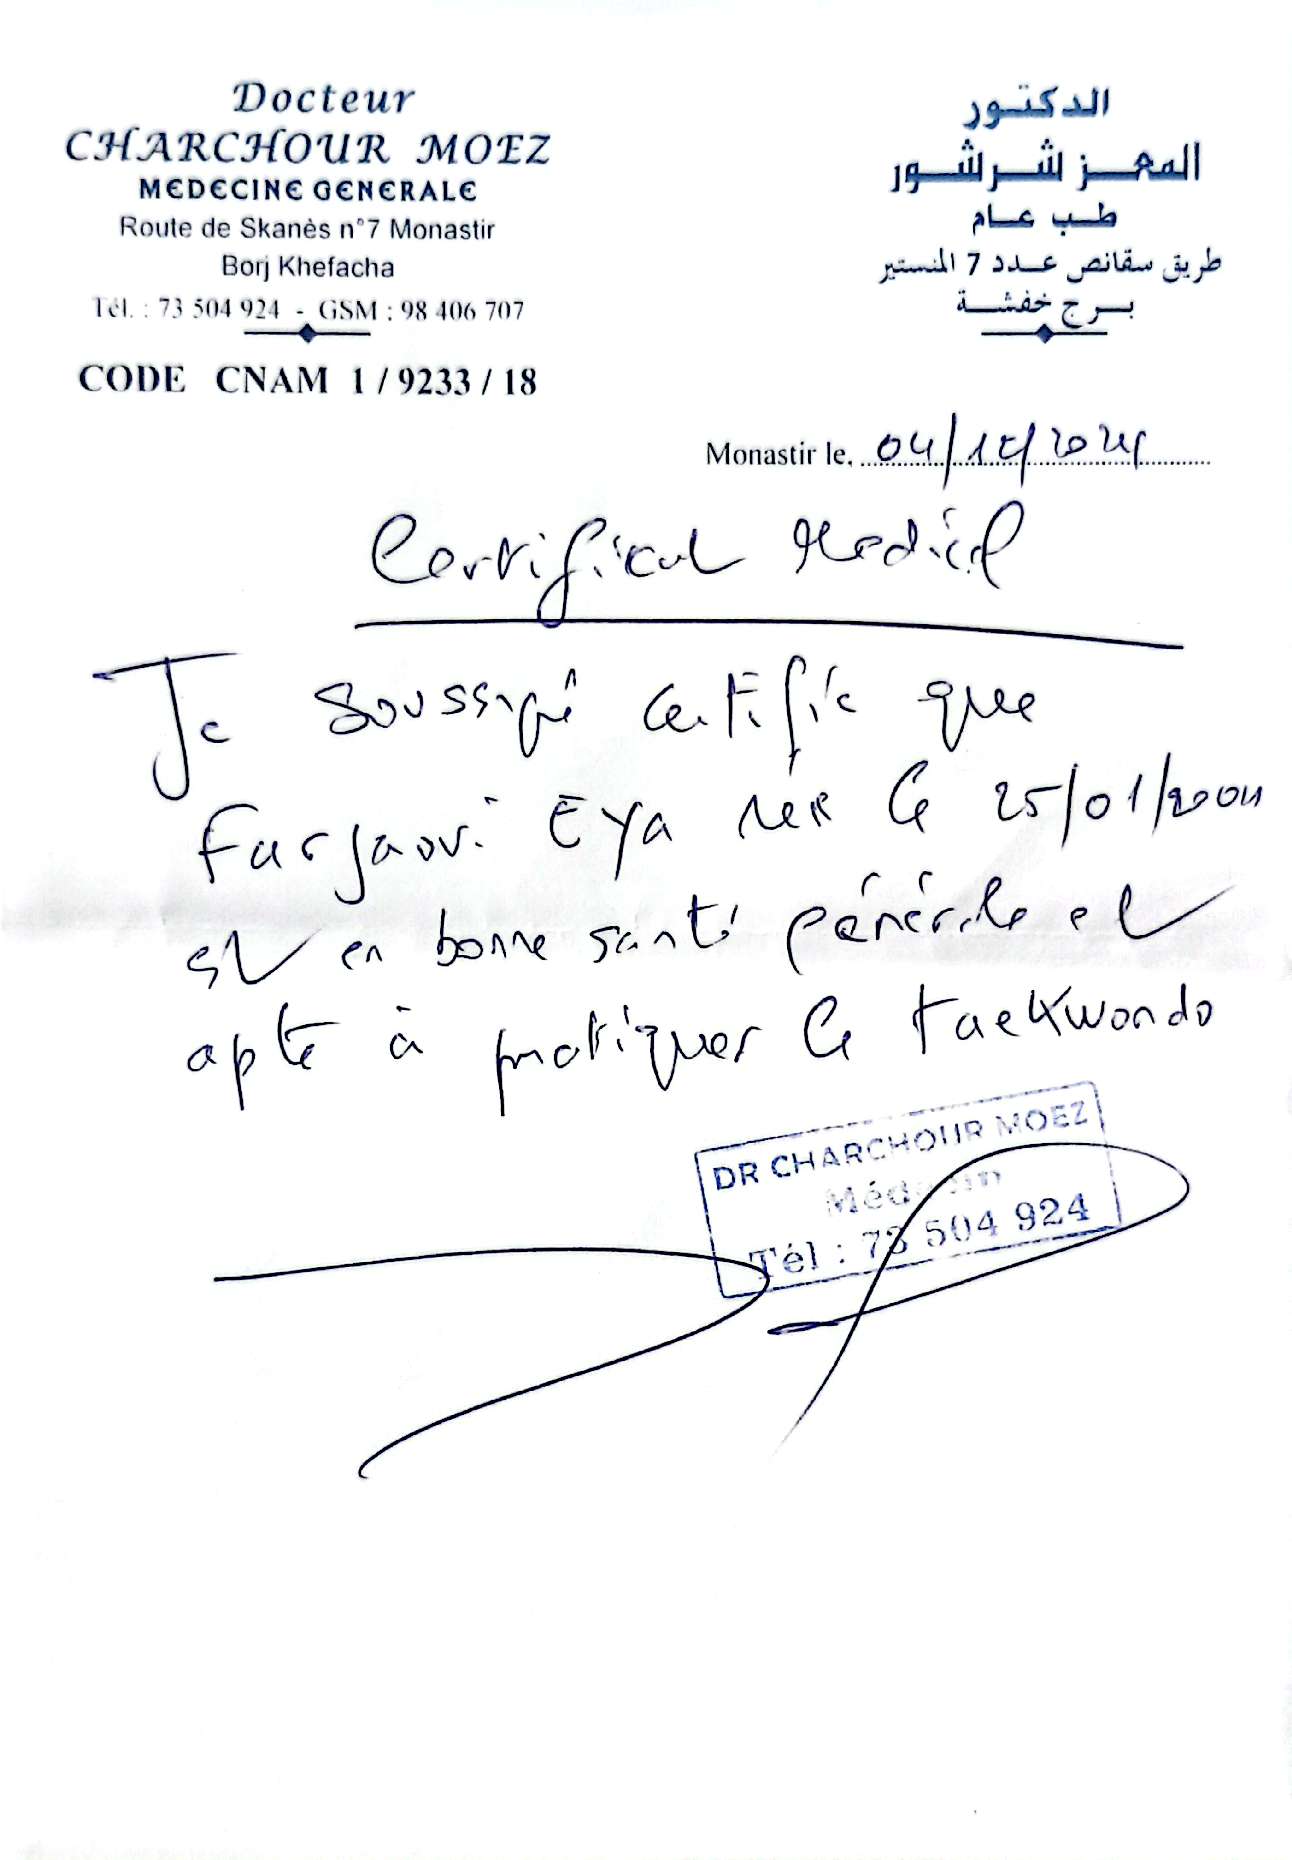 Docteur
CHARCHOUR MOEZ
MEDECINE GENERALE
Route de Skanès n°7 Monastir
Borj Khefacha
Tél. : 73 504 924 - GSM : 98 406 707
CODE CNAM 1 / 9233 / 18
الدكتور
المعز شرشور
طب عام
طريق سقانص عدد 7 المنستير
برج خفشة
Monastir le, 04/12/2024
Certificat Médical
Je soussigné certifie que
Farjaoui Eya née le 25/01/2004
est en bonne santé générale et
apte à pratiquer le taekwondo
DR CHARCHOUR MOEZ
Médecin
Tél : 73 504 924